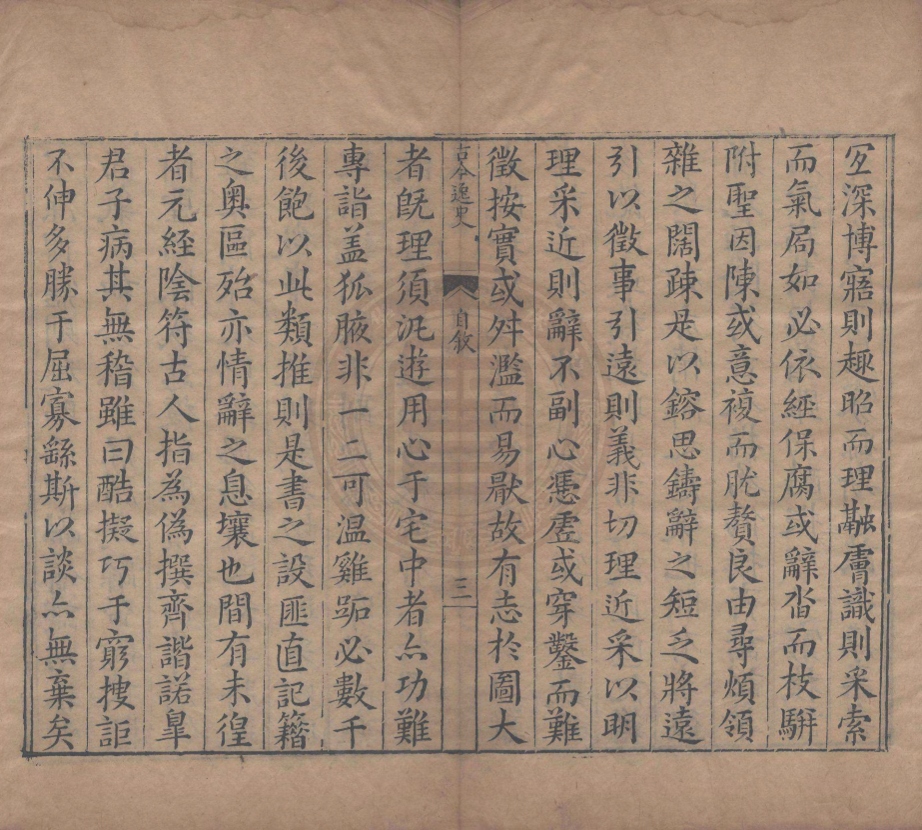 冝深博寤則趣昭而理融膚識則采索
而氣局如必依經保腐或辭沓而枝駢
附聖因陳或意複而肬贅良由尋煩領
雜之闊疎是以鎔思鑄辭之短乏將遠
引以徵事引遠則義非切理近采以明
理采近則辭不副心憑虗或穿鑿而難
徵按實或舛濫而易厭故有志於圖大
古今逸史 自敘 三
者旣理須汎遊用心于宅中者亦功難
專詣盖狐腋非一二可溫雞跖必數千
後飽以此類推則是書之設匪直記籍
之奥區殆亦情辭之息壤也間有未徨
者元經陰符古人指為偽撰齊諧諾皐
君子病其無稽雖曰酷擬巧于窮搜詎
不伸多勝于屈寡繇斯以談亦無棄矣